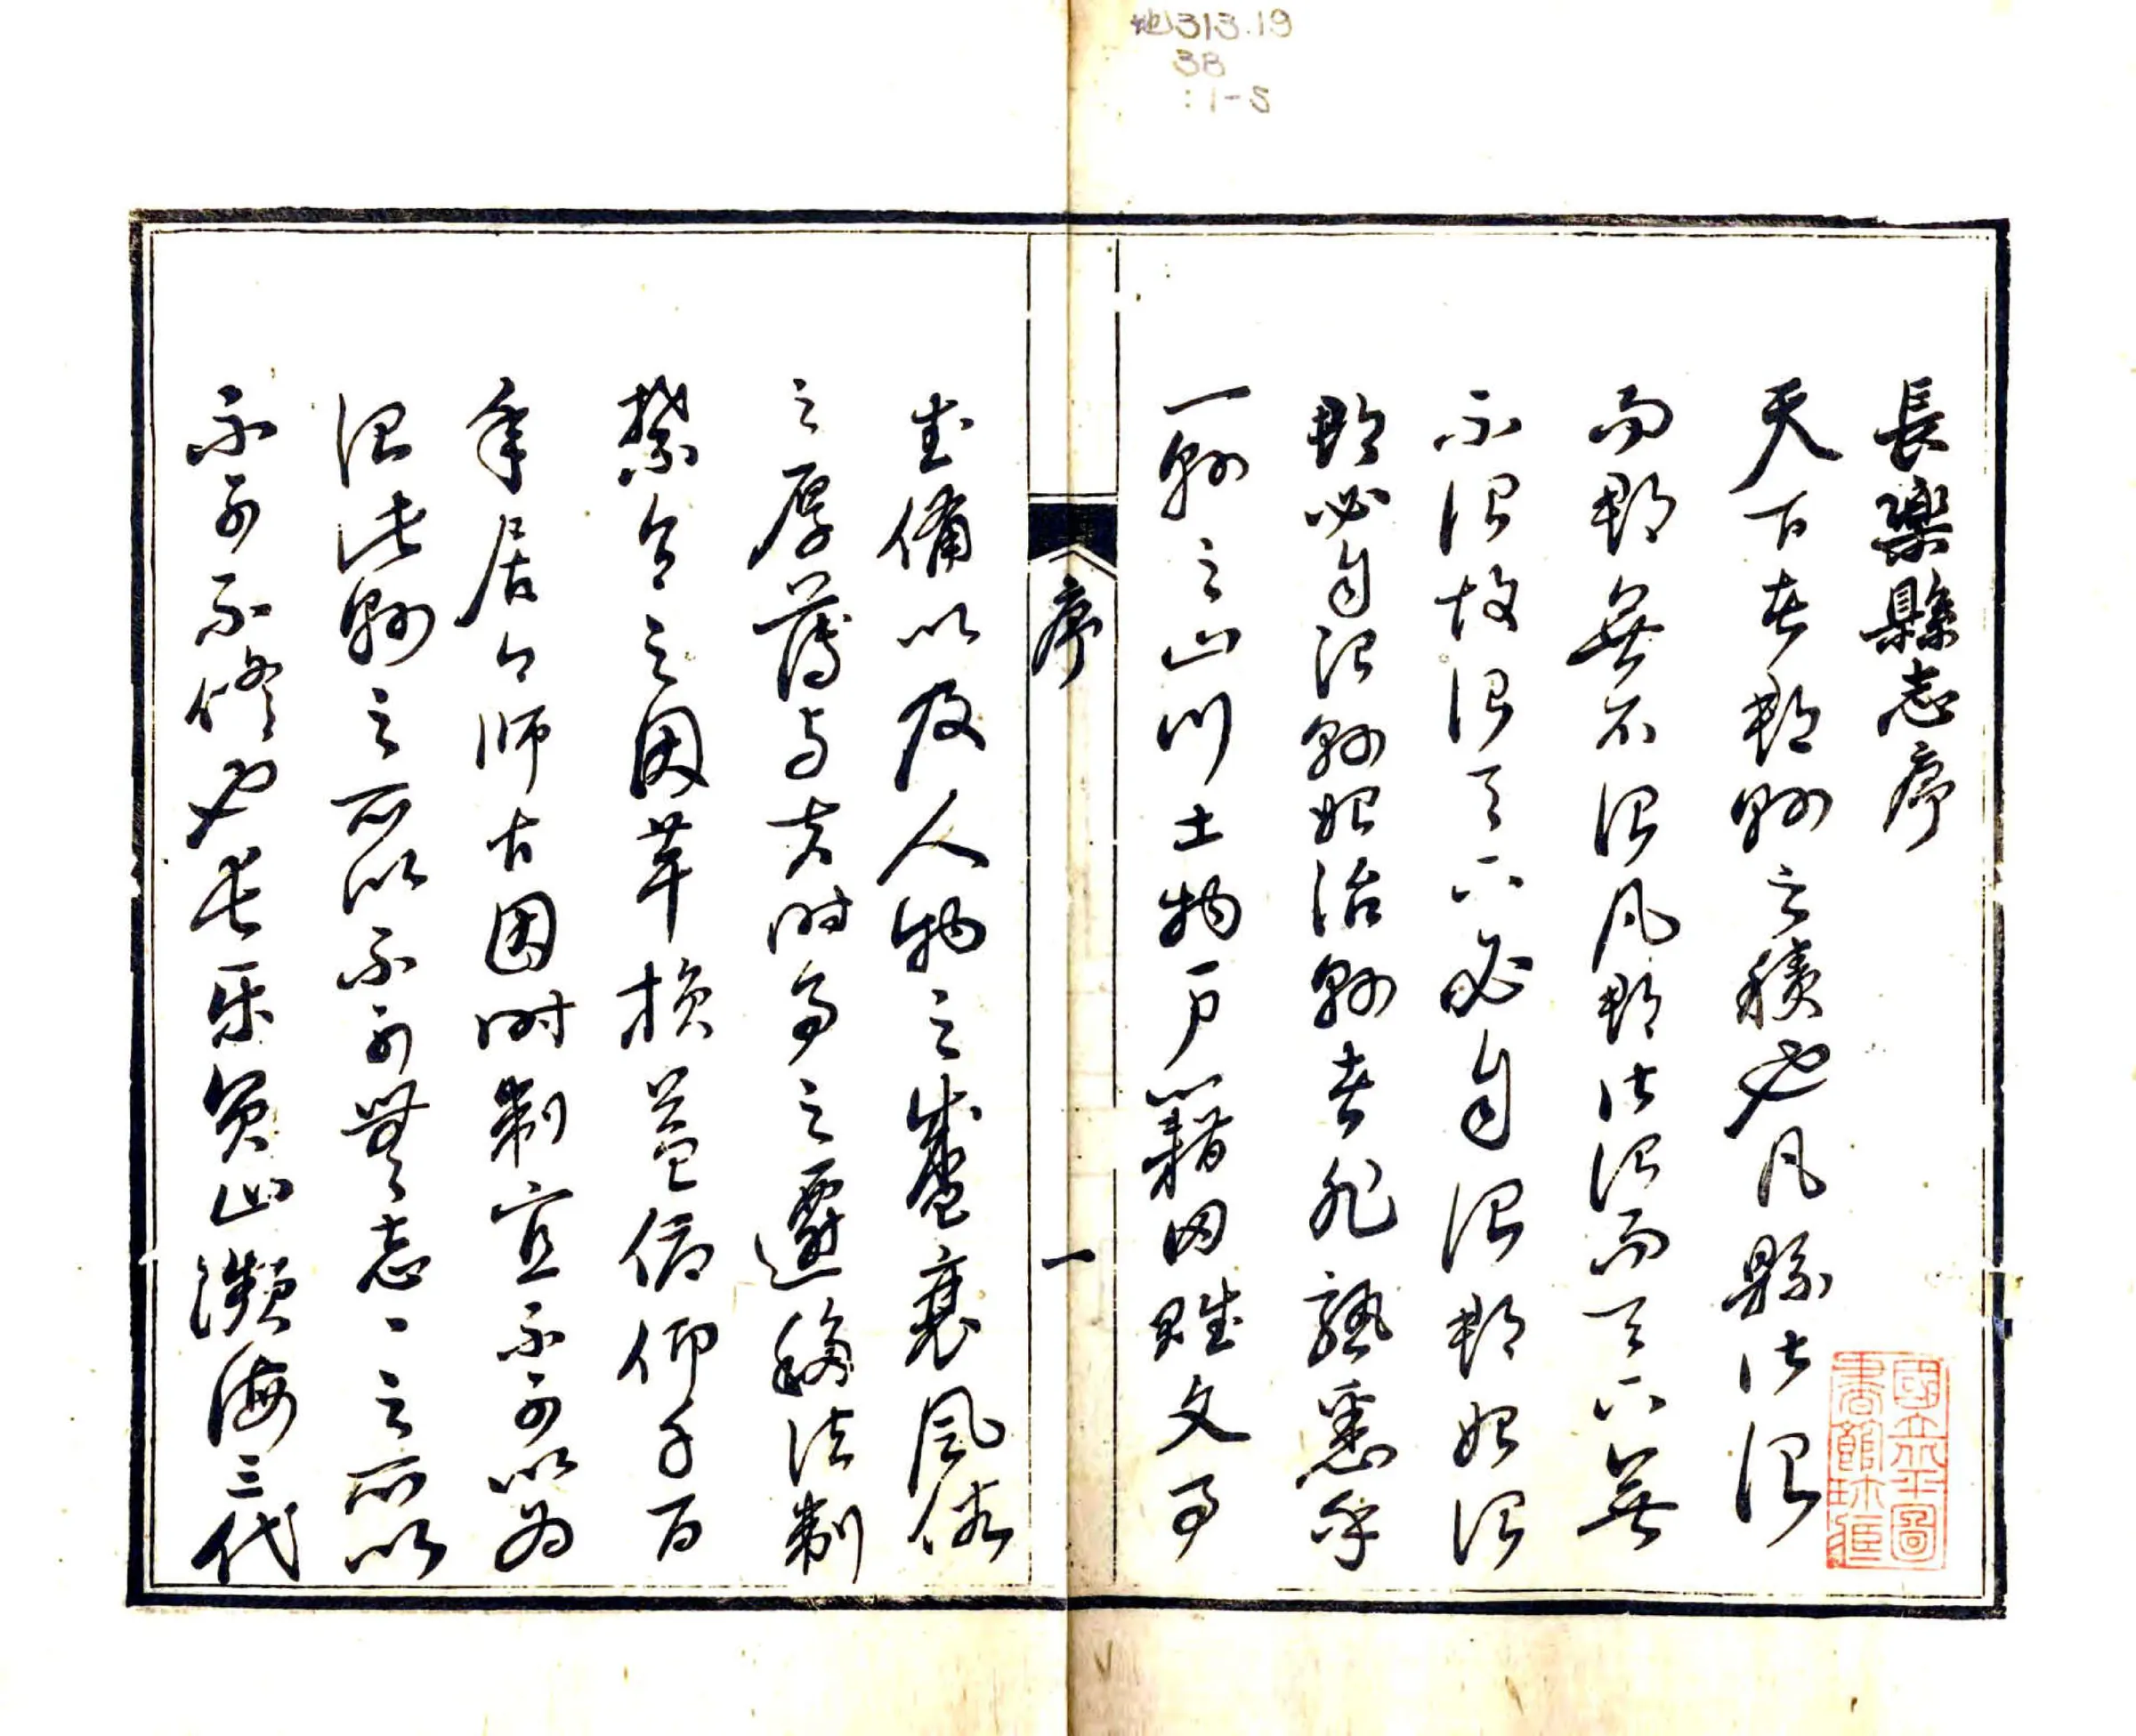 地313.19
38
:1-5
長樂縣志序
天下者郡縣之積也凡縣皆治
而郡無不治凡郡皆治而天下無
不治故治天下必自治郡始治
郡必自治縣始治縣者非熟悉乎
一縣之山川土物戶籍田賦文事
武備以及人物之盛衰風俗
之厚薄與夫時之遷移法制
禁令之因革損益俯仰千百
年居今師古因時制宜不可以為
治此縣之所以不可無志〻之所以
不可不修也長樂負山瀕海三代
序
一
國立北平圖
書館珍藏